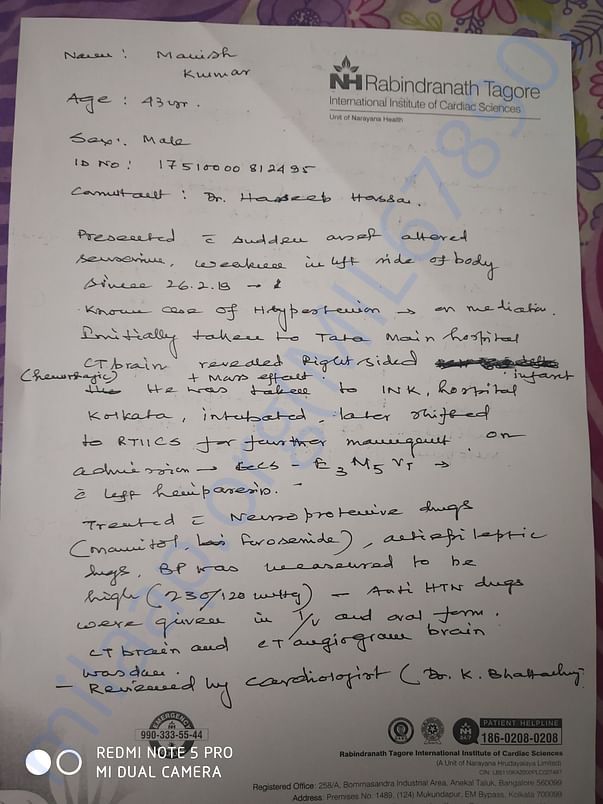 Name : Manish
Kumar
NH Rabindranath Tagore
International Institute of Cardiac Sciences
Unit of Narayana Health
Age : 43 yr.
Sex : Male
ID No : 17510000812495
Consultant : Dr. Haseeb Hassan.
Presented c̄ sudden onset altered
sensorium, weakness in left side of body
since 26.2.19 →
Known case of Hypertension → on medication.
Initially taken to Tata Main hospital
CT brain revealed Right sided infarct
(hemorrhagic) + Mass effect
He was taken to INK, hospital
Kolkata, intubated, later shifted
to RTIICS for further management. on
admission → GCS - E3 M5 VT →
c̄ left hemiparesis.
Treated c̄ Neuroprotective drugs
(manitol, furosemide), antiepileptic
drugs. BP was measured to be
high (230/120 mmHg) - Anti HTN drugs
were given in I/V and oral form.
CT brain and CT angiogram brain
was done.
- Reviewed by cardiologist (Dr. K. Bhattacharjy
milaap.org@MIL67890
EMERGENCY
990-333-55-44
24/7
PATIENT HELPLINE
186-0208-0208
Rabindranath Tagore International Institute of Cardiac Sciences
(A Unit of Narayana Hrudayalaya Limited)
Registered Office: 258/A, Bommasandra Industrial Area, Anekal Taluk, Bangalore 560099
Address: Premises No. 1489, (124) Mukundapur, EM Bypass, Kolkata 700099
REDMI NOTE 5 PRO
MI DUAL CAMERA